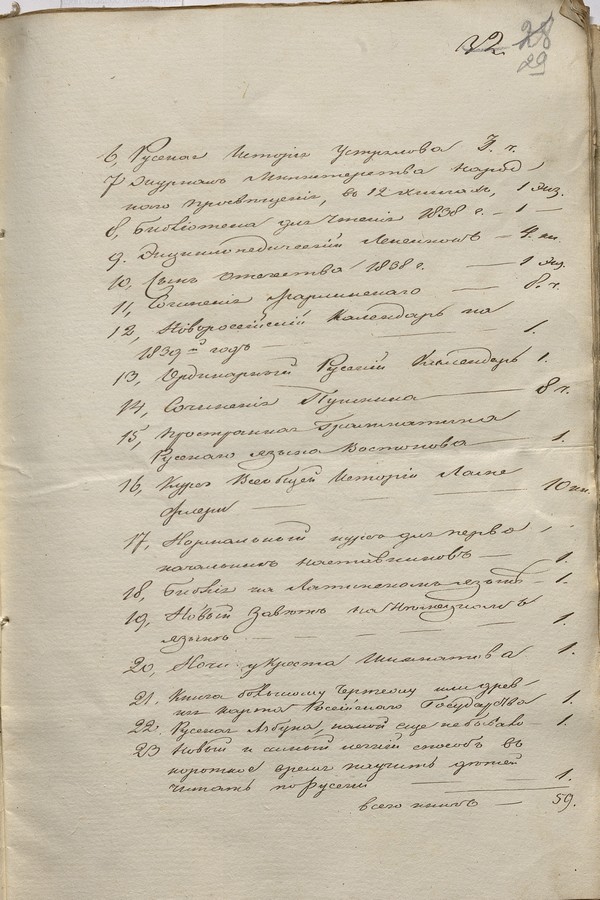 32 28
29
6, Русская Исторія Устрялова 3. т.
7 Журналъ Министерства народ
наго просвѣщенія, въ 12 книгахъ, 1 экз.
8, Библіотека для Чтенія 1838 г. — 1 —
9. Энциклопедическій Лексиконъ — 4. кн.
10, Сынъ Отечества 1838 г. — 1 экз.
11, Сочиненія Марлинскаго — 8. т.
12, Новоросійскій Календарь на
1839-й годъ — — 1.
13, Ординарный Русскій Календарь 1.
14, Сочиненія Пушкина — 8 т.
15, Пространная Грамматика
Русскаго языка Востокова — 1.
16, Курсъ Всеобщей Исторіи Ламе
Флери — — 10 кн.
17, Нормальный курсъ для перво
начальныхъ наставниковъ — 1.
18, Библія на Латинскомъ языкѣ — 1.
19, Новый Завѣтъ на Нѣмецкомъ
языкѣ — — — — 1.
20, Ночь у Креста Шихматова 1.
21. Книга большому Чертежу или древ
няя карта Російскаго Государства 1.
22. Русская Азбука, какой еще небывало — 1.
23 Новый и самый легкій способъ въ
короткое время научить дѣтей
читать порусски — 1.
всего книгъ — 59.